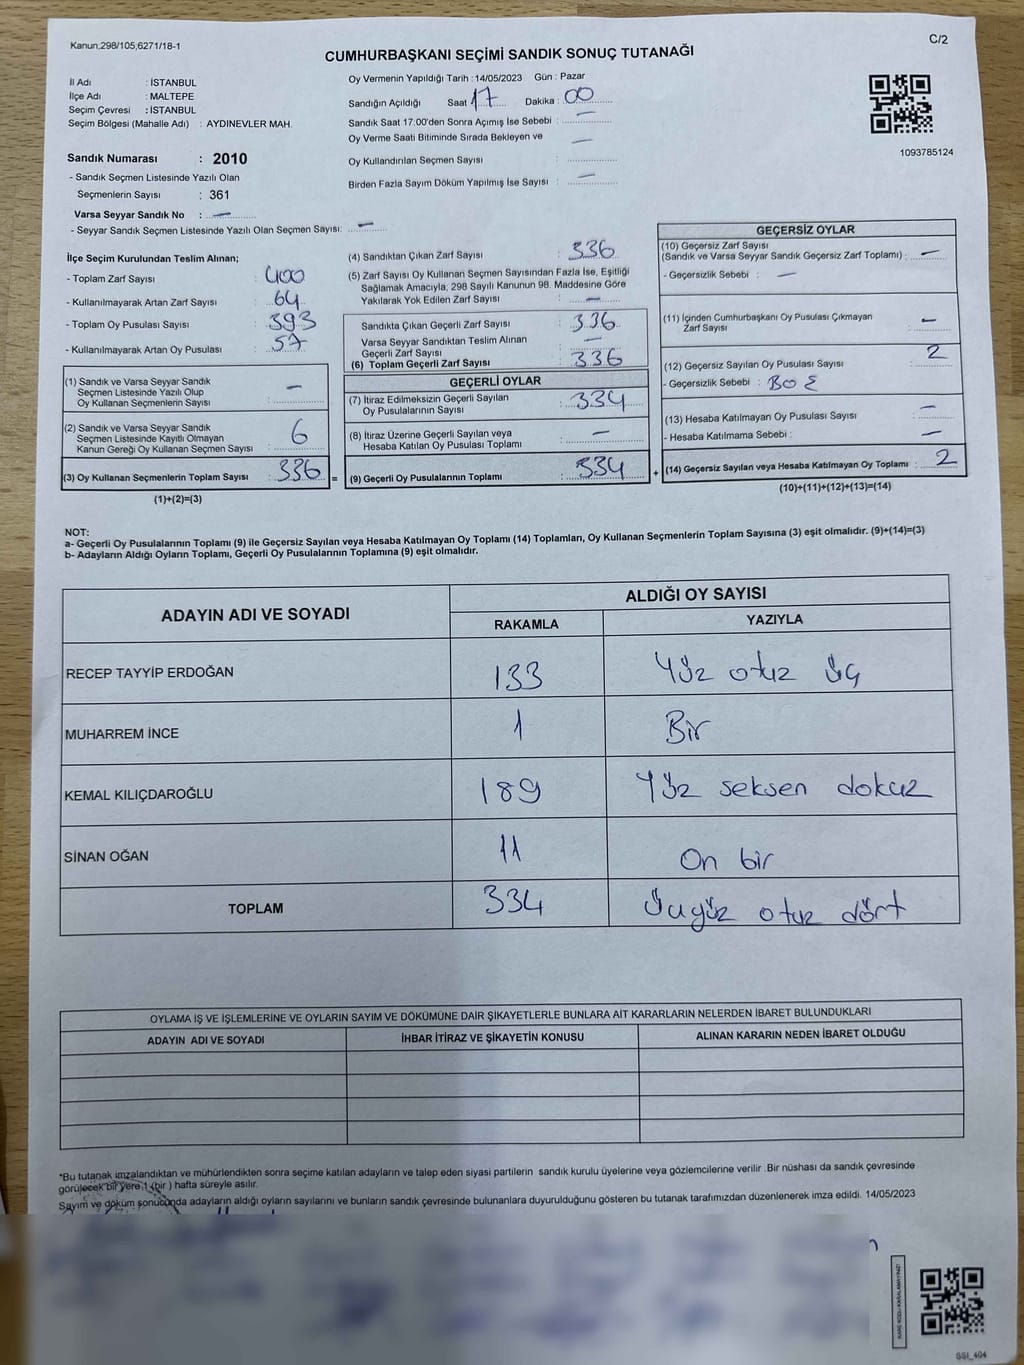 Kanun;298/105;6271/18-1
C/2
CUMHURBAŞKANI SEÇİMİ SANDIK SONUÇ TUTANAĞI
İl Adı : İSTANBUL
İlçe Adı : MALTEPE
Seçim Çevresi : İSTANBUL
Seçim Bölgesi (Mahalle Adı) : AYDINEVLER MAH.
Oy Vermenin Yapıldığı Tarih : 14/05/2023 Gün : Pazar
Sandığın Açıldığı Saat 17 Dakika : 00
Sandık Saat 17:00'den Sonra Açımış İse Sebebi : —
Oy Verme Saati Bitiminde Sırada Bekleyen ve —
Oy Kullandırılan Seçmen Sayısı :
Birden Fazla Sayım Döküm Yapılmış İse Sayısı : —
1093785124
Sandık Numarası : 2010
- Sandık Seçmen Listesinde Yazılı Olan
Seçmenlerin Sayısı : 361
Varsa Seyyar Sandık No : —
- Seyyar Sandık Seçmen Listesinde Yazılı Olan Seçmen Sayısı: —
İlçe Seçim Kurulundan Teslim Alınan;
- Toplam Zarf Sayısı : 400
- Kullanılmayarak Artan Zarf Sayısı : 64
- Toplam Oy Pusulası Sayısı : 393
- Kullanılmayarak Artan Oy Pusulası : 57
(1) Sandık ve Varsa Seyyar Sandık
Seçmen Listesinde Yazılı Olup
Oy Kullanan Seçmenlerin Sayısı : —
(2) Sandık ve Varsa Seyyar Sandık
Seçmen Listesinde Kayıtlı Olmayan
Kanun Gereği Oy Kullanan Seçmen Sayısı : 6
(3) Oy Kullanan Seçmenlerin Toplam Sayısı : 336 =
(1)+(2)=(3)
(4) Sandıktan Çıkan Zarf Sayısı : 336
(5) Zarf Sayısı Oy Kullanan Seçmen Sayısından Fazla İse, Eşitliği
Sağlamak Amacıyla, 298 Sayılı Kanunun 98. Maddesine Göre
Yakılarak Yok Edilen Zarf Sayısı : —
Sandıkta Çıkan Geçerli Zarf Sayısı : 336
Varsa Seyyar Sandıktan Teslim Alınan
Geçerli Zarf Sayısı : —
(6) Toplam Geçerli Zarf Sayısı : 336
GEÇERLİ OYLAR
(7) İtiraz Edilmeksizin Geçerli Sayılan
Oy Pusulalarının Sayısı : 334
(8) İtiraz Üzerine Geçerli Sayılan veya
Hesaba Katılan Oy Pusulası Toplamı : —
(9) Geçerli Oy Pusulalarının Toplamı : 334 +
GEÇERSİZ OYLAR
(10) Geçersiz Zarf Sayısı
(Sandık ve Varsa Seyyar Sandık Geçersiz Zarf Toplamı) : —
- Geçersizlik Sebebi : —
(11) İçinden Cumhurbaşkanı Oy Pusulası Çıkmayan
Zarf Sayısı : —
(12) Geçersiz Sayılan Oy Pusulası Sayısı : 2
- Geçersizlik Sebebi : BOŞ
(13) Hesaba Katılmayan Oy Pusulası Sayısı : —
- Hesaba Katılmama Sebebi : —
(14) Geçersiz Sayılan veya Hesaba Katılmayan Oy Toplamı : 2
(10)+(11)+(12)+(13)=(14)
NOT:
a- Geçerli Oy Pusulalarının Toplamı (9) ile Geçersiz Sayılan veya Hesaba Katılmayan Oy Toplamı (14) Toplamları, Oy Kullanan Seçmenlerin Toplam Sayısına (3) eşit olmalıdır. (9)+(14)=(3)
b- Adayların Aldığı Oyların Toplamı, Geçerli Oy Pusulalarının Toplamına (9) eşit olmalıdır.
ADAYIN ADI VE SOYADI
ALDIĞI OY SAYISI
RAKAMLA YAZIYLA
RECEP TAYYİP ERDOĞAN 133 Yüz otuz üç
MUHARREM İNCE 1 Bir
KEMAL KILIÇDAROĞLU 189 Yüz seksen dokuz
SİNAN OĞAN 11 On bir
TOPLAM 334 Üçyüz otuz dört
OYLAMA İŞ VE İŞLEMLERİNE VE OYLARIN SAYIM VE DÖKÜMÜNE DAİR ŞİKAYETLERLE BUNLARA AİT KARARLARIN NELERDEN İBARET BULUNDUKLARI
ADAYIN ADI VE SOYADI İHBAR İTİRAZ VE ŞİKAYETİN KONUSU ALINAN KARARIN NEDEN İBARET OLDUĞU
*Bu tutanak imzalandıktan ve mühürlendikten sonra seçime katılan adayların ve talep eden siyasi partilerin sandık kurulu üyelerine veya gözlemcilerine verilir .Bir nüshası da sandık çevresinde
görülecek bir yere 1 (bir ) hafta süreyle asılır.
Sayım ve döküm sonucunda adayların aldığı oyların sayılarını ve bunların sandık çevresinde bulunanlara duyurulduğunu gösteren bu tutanak tarafımızdan düzenlenerek imza edildi. 14/05/2023
KARE KODU KARALAMAYINIZ!
SSI_404